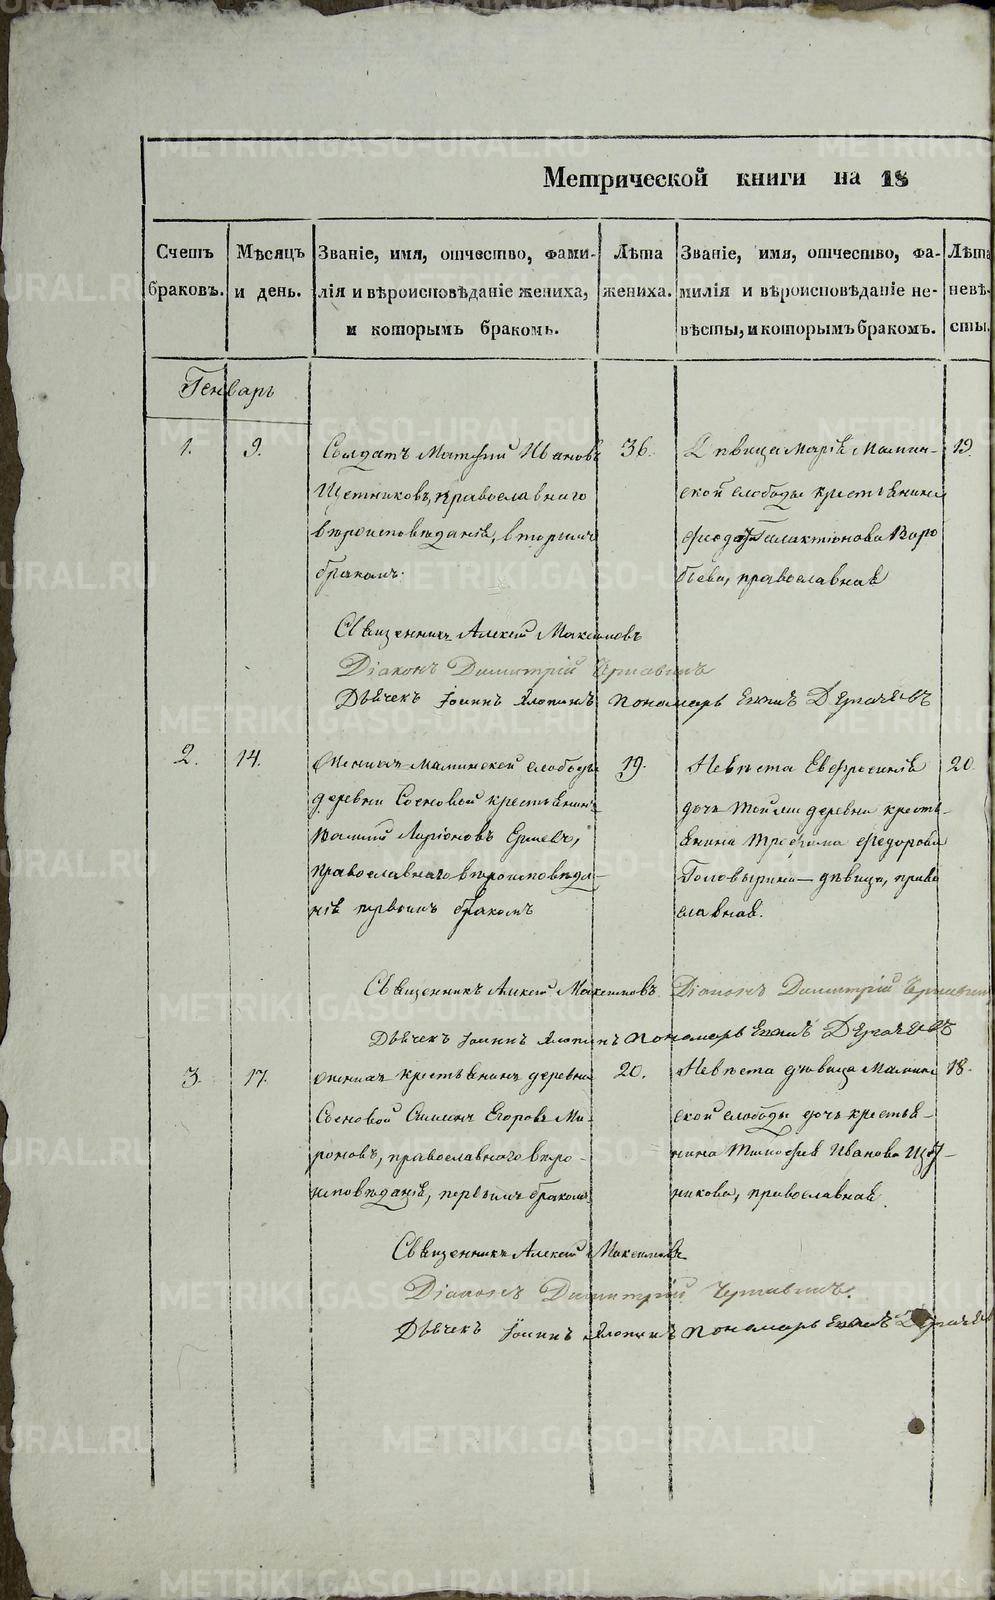 METRIKI.GASO-URAL.RU
Метрической книги на 18
Счетъ браковъ.
Мѣсяцъ и день.
Званіе, имя, отчество, фами-
лія и вѣроисповѣданіе жениха,
и которымъ бракомъ.
Лѣта жениха.
Званіе, имя, отчество, фа-
милія и вѣроисповѣданіе не-
вѣсты, и которымъ бракомъ.
Лѣта
невѣ-
сты.
Генварь
1.
9.
Солдатъ Матфий Ивановъ
Щетниковъ, православнаго
вѣроисповѣданія, вторымъ
бракомъ.
36.
Дѣвица Марія Мамин-
ской слободы крестьянина
Галактіонова Воро
бьева, православная
19.
Священникъ Алексий Максимовъ
Діаконъ Димитрій
Дьячекъ Іоаннъ пономарь
2.
14.
Женихъ Маминской слободы
деревни Сосновой крестьянинъ
Ларіоновъ
православнаго вѣроисповѣда-
нія первымъ бракомъ
19.
Невѣста Евфросинія
дочь той же деревни кресть-
янина Трофима Федорова
Головырина - дѣвица, право
славная.
20
Священникъ Алексий Максимовъ Діаконъ Димитрій
Дьячекъ Іоаннъ пономарь
3.
17.
Женихъ крестьянинъ деревни
Сосновой Симеонъ Егоровъ Ми-
роновъ, православнаго вѣро-
исповѣданія, первымъ бракомъ
20.
Невѣста дѣвица Мамин
ской слободы дочь крестья-
нина Тимофея Иванова
никова, православная.
18.
Священникъ Алексий Максимовъ
Діаконъ Димитрій
Дьячекъ Іоаннъ пономарь